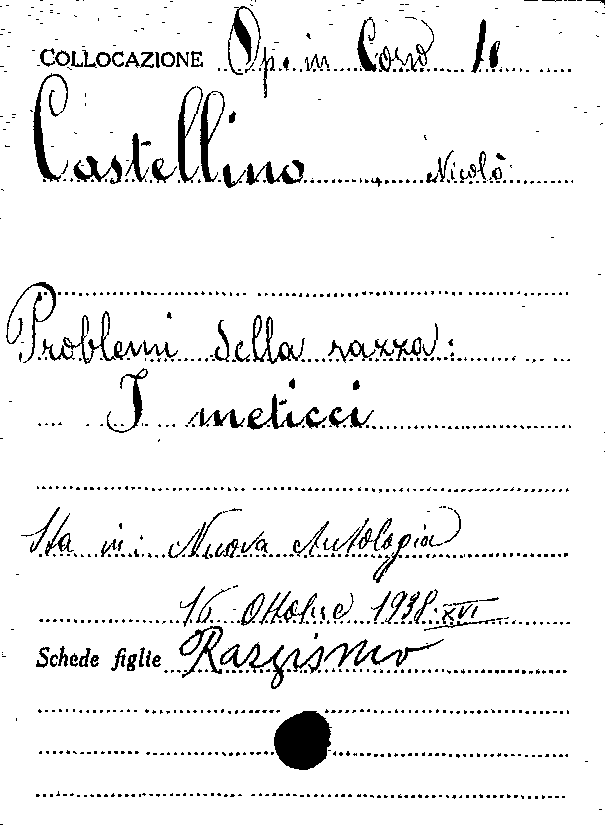 COLLOCAZIONE Op. in Corso 10
Castellino, Nicolò
Problemi della razza:
I meticci
Sta in: Nuova Antologia
16 Ottobre 1938-XVI
Schede figlie Razzismo